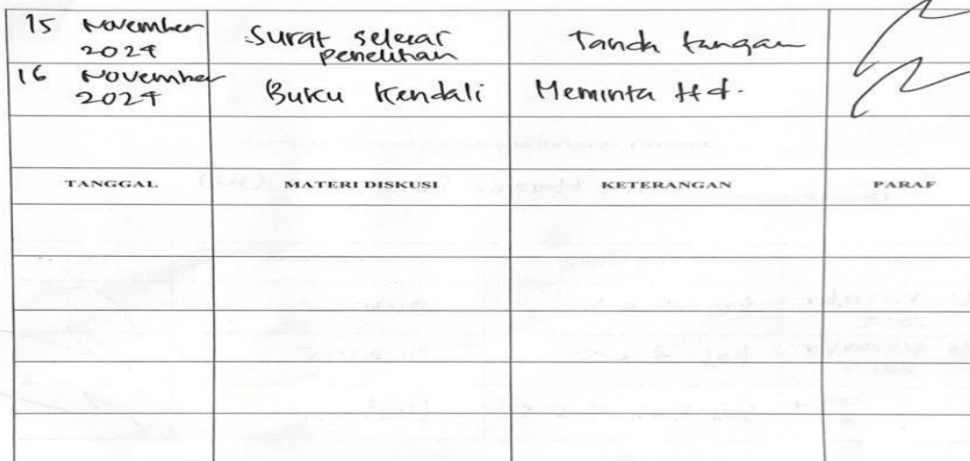 15 November 2024
Surat selesai penelitian
Tanda tangan
16 November 2024
Buku Kendali
Meminta ttd.
TANGGAL MATERI DISKUSI KETERANGAN PARAF